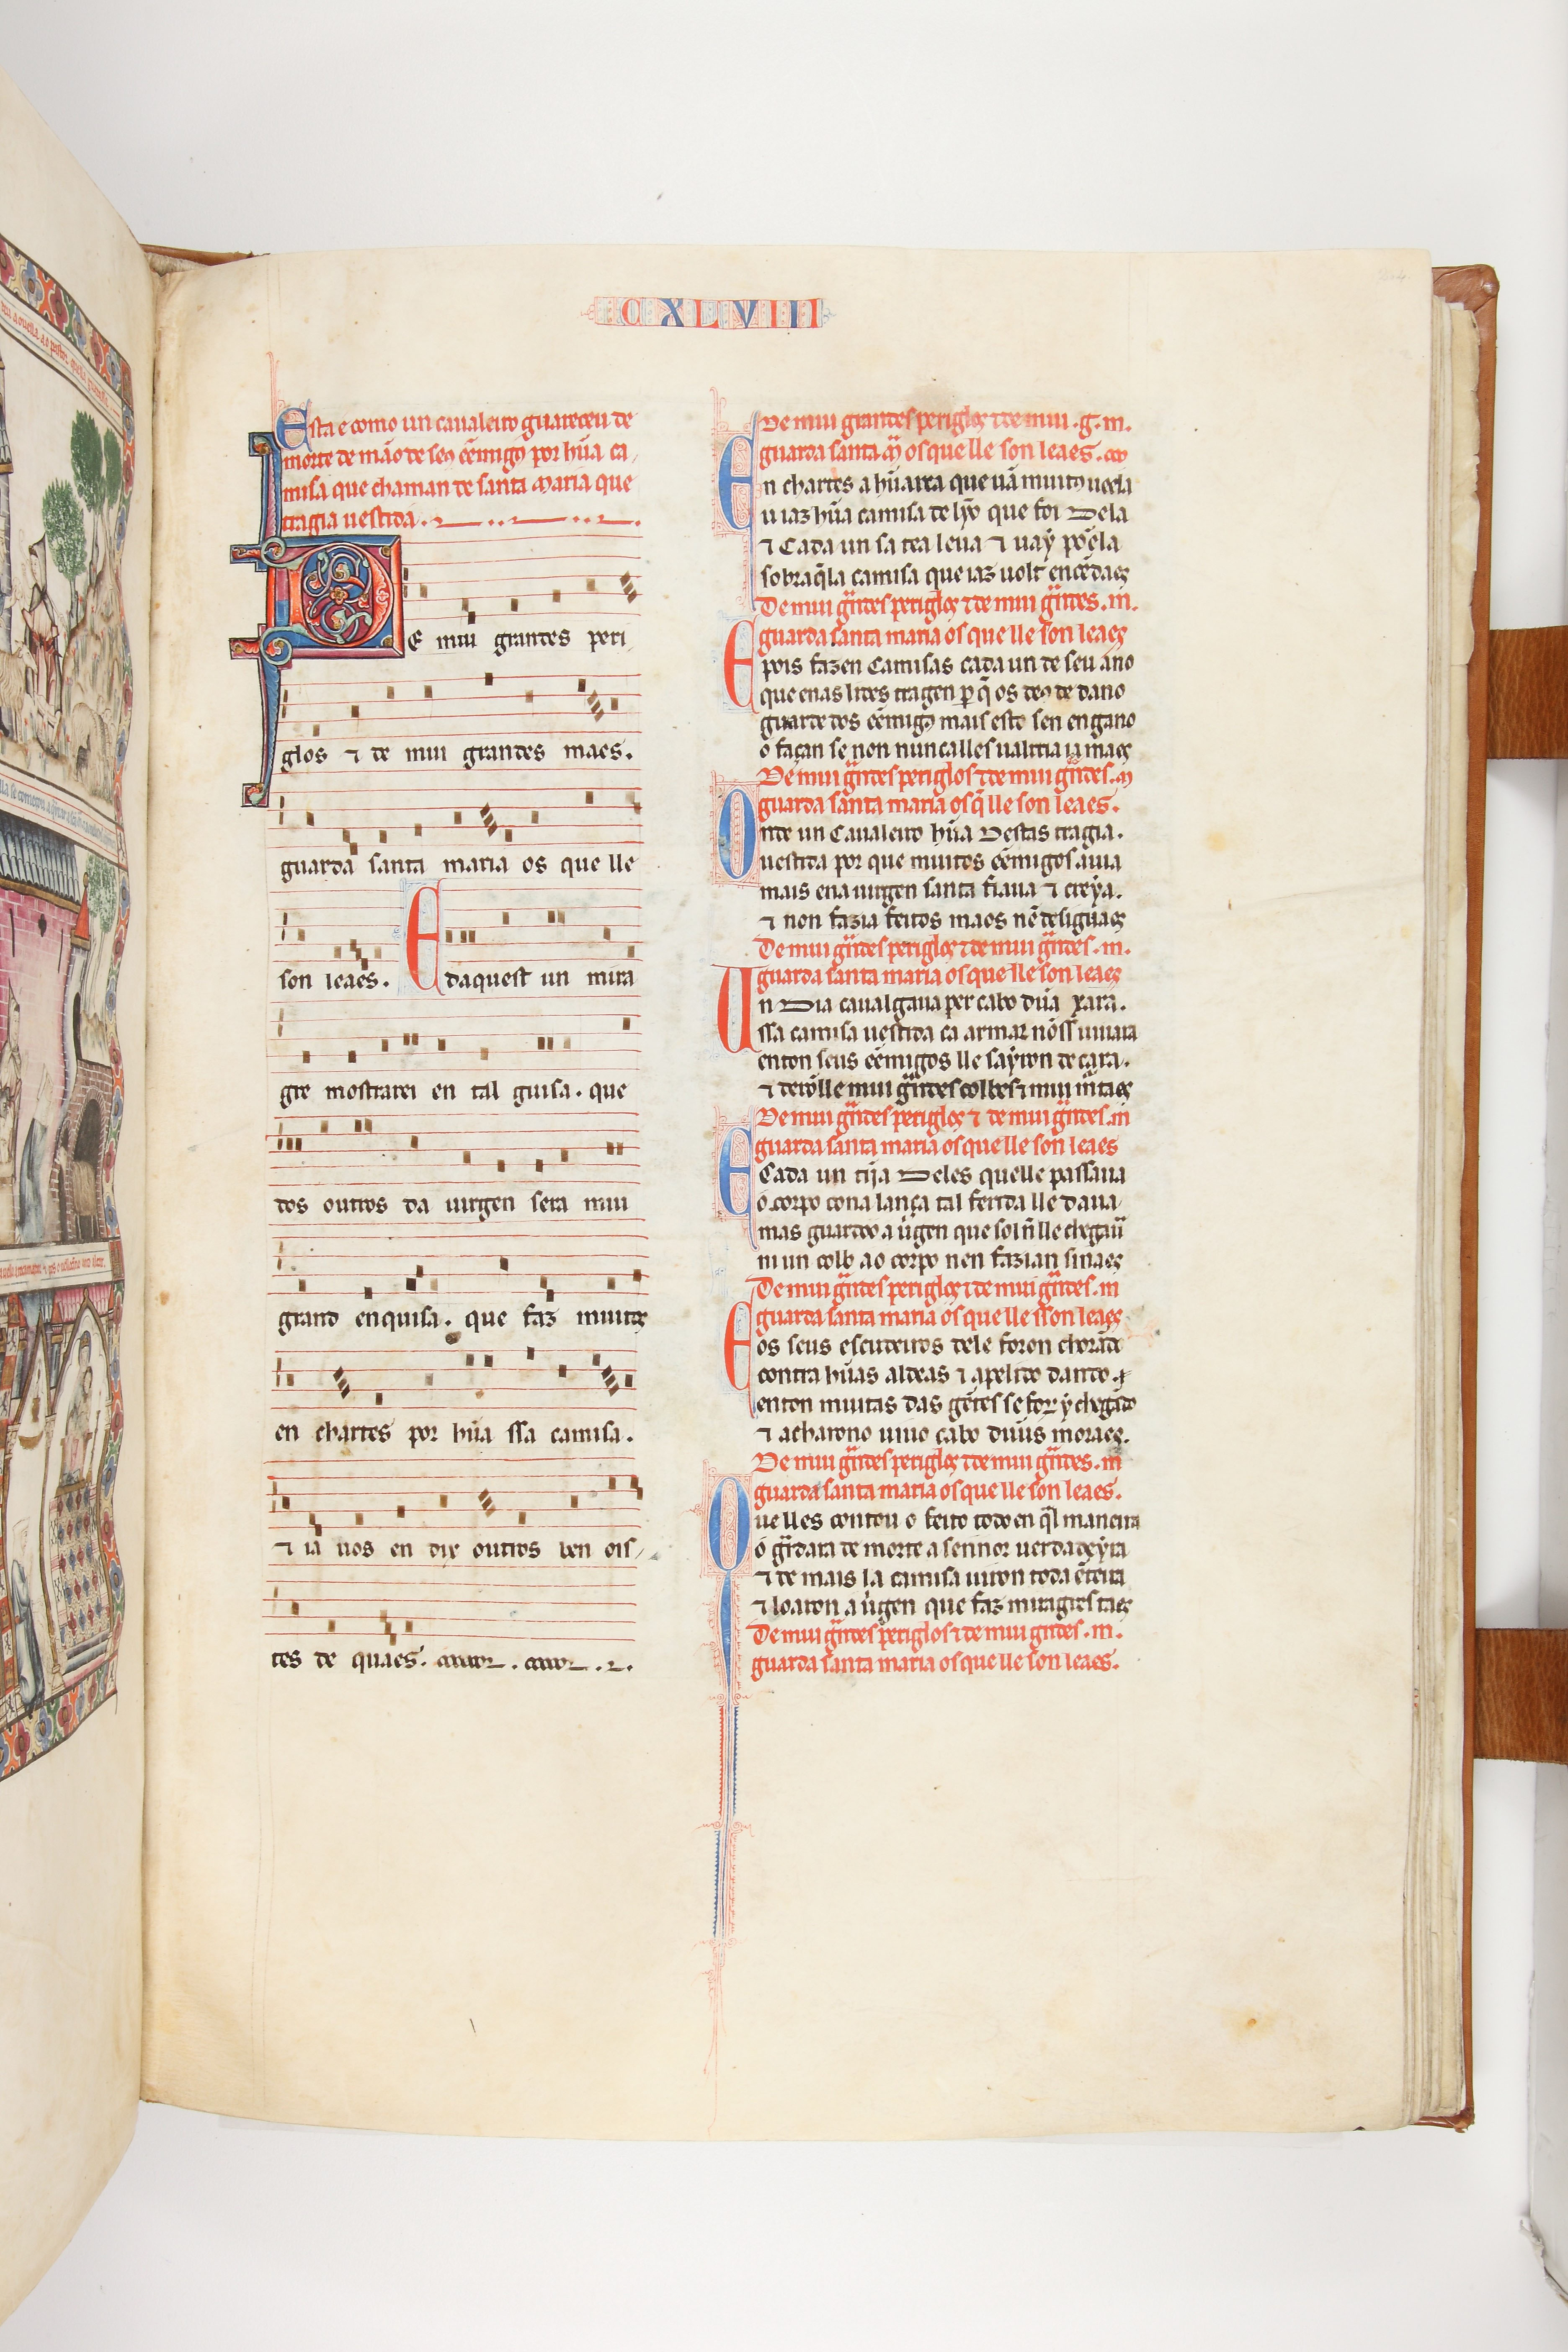 CXLVIII
Esta e como un caualeiro guareceu de
morte de mão de seus ẽemigos por hũa ca-
misa que chaman de santa Maria que
tragia uestida.
DE mui grandes peri-
glos ⁊ de mui grandes maes.
guarda santa maria os que lle
son leaes. E daquest un mira
gre mostrarei en tal guisa. que
dos outros da uirgen sera mui
grand enquisa. que faz muitas
en chartes por hũa ssa camisa.
⁊ ia uos en dix outros ben ois-
tes de quaes.
De mui grandes periglos ⁊ de mui .g. m.
guarda santa m̃ os que lle son leaes.
En chartes a hũa arca que uã muitos ueela
u iaz hũa camisa de lỹo que foi Dela
⁊ Cada un sa tea leua ⁊ uaỹ põela
sobraq̃la camisa que iaz uolt en cẽdaes
De mui grãndes periglos ⁊ de mui grãndes. m.
guarda santa maria os que lle son leaes
E pois fazen Camisas cada un de seu ano
que enas lides tragen p̱ q̃ os deus de dano
guarde dos ẽemigos mais esto sen engano
o façan se non nunca lles ualrria ia maes
De mui grãndes periglos ⁊ de mui grãndes. m
guarda santa maria os q̃ lle son leaes.
Onde un Caualeiro hũa Destas tragia.
uestida por que muitos ẽemigos auia
mais ena uirgen santa fiaua ⁊ creýa.
⁊ non fazia feitos maos nẽ desiguaes
De mui grãndes periglos ⁊ de mui grãndes. m.
guarda santa maria os que lle son leaes
Un Dia caualgaua per cabo dũa xara.
ssa camisa uestida ca armar nõ ss uuiara
enton seus ẽemigos lle saýron de cara.
⁊ derõlle mui grãndes colbes ⁊ mui mortaes
De mui grãndes periglos ⁊ de mui grãndes. m
guarda santa maria os que lle son leaes
E Cada un tija Deles quelle passaua
o corpo cona lança tal ferida lle daua
mas guardoo a uirgen que sol ñ lle chegaua
niun colb ao corpo nen fazian sinaes
De mui grãndes periglos ⁊ de mui grãndes. m
guarda santa maria os que lle sson leaes
E os seus escudeiros dele foron chorãdo
contra hũas aldeas ⁊ apelido dando.
enton muitas das gẽtes se foron ý chegãdo
⁊ acharono uiuo cabo dũus moraes.
De mui grãndes periglos ⁊ de mui grãndes. m
guarda santa maria os que lle son leaes.
Que lles contou o feito todo en q̃l maneira
o guardara de morte a sennor uerdadeýra
⁊ de mais la camisa uiron toda ẽteira
⁊ loaron a uirgen que faz miragres taes
De mui grãndes periglos ⁊ de mui grndes. m.
guarda santa maria os que lle son leaes.